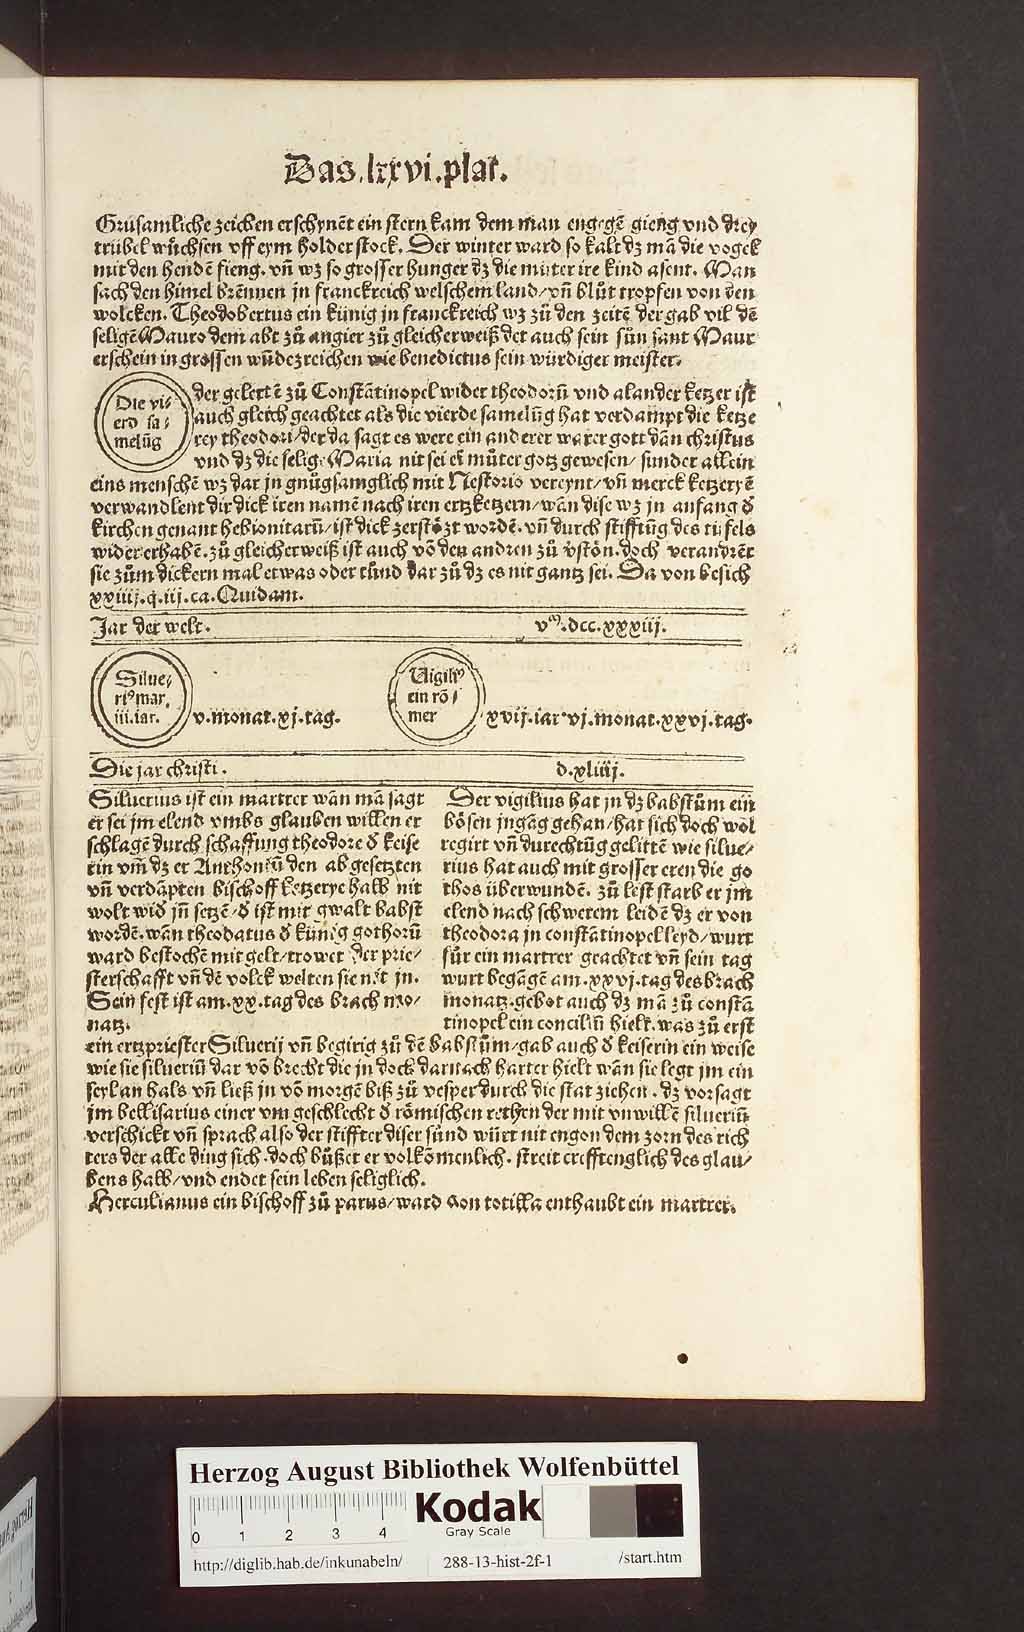 Das .lxxvi. plat.
Grusamliche zeichen erschynēt ein stern kam dem man engegē gieng vnd drey
trübel wůchsen vff eym holder stock. Der winter ward so kalt dz mā die vogel
mit den hendē fieng. vñ wz so grosser hunger dz die muter ire kind asent. Man
sach den himel brēnnen jn franckreich welschem land/ vñ blůt tropfen von den
wolcken. Theodobertus ein künig jn franckreich wz zů den zeitē der gab vil dē
seligē Mauro dem abt zů angier zů gleicherweiß der auch sein sůn sant Maur
erschein in grossen wūdezreichen wie benedictus sein würdiger meister.
Die vi⸗
erd sa⸗
melūg
der gelertē zů Constātinopel wider theodorū vnd alander ketzer ist
auch gleich geachtet als die vierde samelūg hat verdampt die ketze
rey theodori/ der da sagt es were ein anderer warer gott dān christus
vnd dz die selige Maria nit sei eī můter gotz gewesen/ sunder allein
eins menschē wz dar jn gnůgsamglich mit Nestorio vereynt/ vñ merck ketzeryē
verwandlent dir dick iren namē nach iren ertzketzern/ wān dise wz jn anfang d̕
kirchen genant hebionitarū/ ist dick zerstözt wordē. vñ durch stifftūg des tüfels
wider erhabē. zů gleicherweiß ist auch vō den andren zů v̕stōn. doch verandrēt
sie zům dickern mal etwas oder tůnd dar zů dz es nit gantz sei. Da von besich
xxiiij. q. iij. ca. Quidam.
Jar der welt. vᵐ. dcc. xxxiij.
Silue⸗
riꝰ mar.
iii. iar.
v. monat. xj. tag.
Uigiliꝰ
ein rō⸗
mer
xvij. iar vj. monat. xxvj. tag.
Die jar christi. d. xliiij.
Siluerius ist ein martrer wān mā sagt
er sei jm elend vmbs glauben willen er
schlagē durch schaffung theodore d̕ keise
rin vm̄ dz er Anthoniū den abgesetzten
vñ verdāpten bischoff ketzerye halb nit
wolt wid̕ jn̄ setzē/ d̕ ist mit gwalt babst
wordē. wān theodatus d̕ künig gothorū
ward bestochē mit gelt/ trowet der prie⸗
sterschafft vñ dē volck welten sie nit jn.
Sein fest ist am. xx. tag des brach mo⸗
natz.
Der vigilius hat jn dz babstům ein
bösen jngāg gehan/ hat sich doch wol
regirt vñ durechtūg gelittē wie silue⸗
rius hat auch mit grosser eren die go
thos überwundē. zů lest starb er jm
elend nach schwerem leidē dz er von
theodora jn constātinopel leyd/ wurt
für ein martrer geachtet vñ sein tag
wurt begāgē am. xxvj. tag des brach
monatz. gebot auch dz mā zů constā
tinopel ein conciliū hielt. was zů erst
ein ertzpriester Siluerij vñ begirig zů dē babstům/ gab auch d̕ keiserin ein weise
wie sie silueriū dar vō brecht die jn dock darnach harter hielt wān sie legt jm ein
seyl an hals vñ ließ jn vō morgē biß zů vesper durch die stat ziehen. dz vorsagt
jm bellisarius einer vm geschlecht d̕ römischen rethen der mit vnwillē silueriū
verschickt vñ sprach also der stiffter diser sünd würt nit engon dem zorn des rich
ters der alle ding sich. doch bůßet er volkōmenlich. streit crefftenglich des glau⸗
bens halb/ vnd endet sein leben seliglich.
Herculianus ein bischoff zů parus/ ward von totilla enthaubt ein martrer.
Herzog August Bibliothek Wolfenbüttel
0 1 2 3 4
Kodak
Gray Scale
http://diglib.hab.de/inkunabeln/ 288-13-hist-2f-1 /start.htm